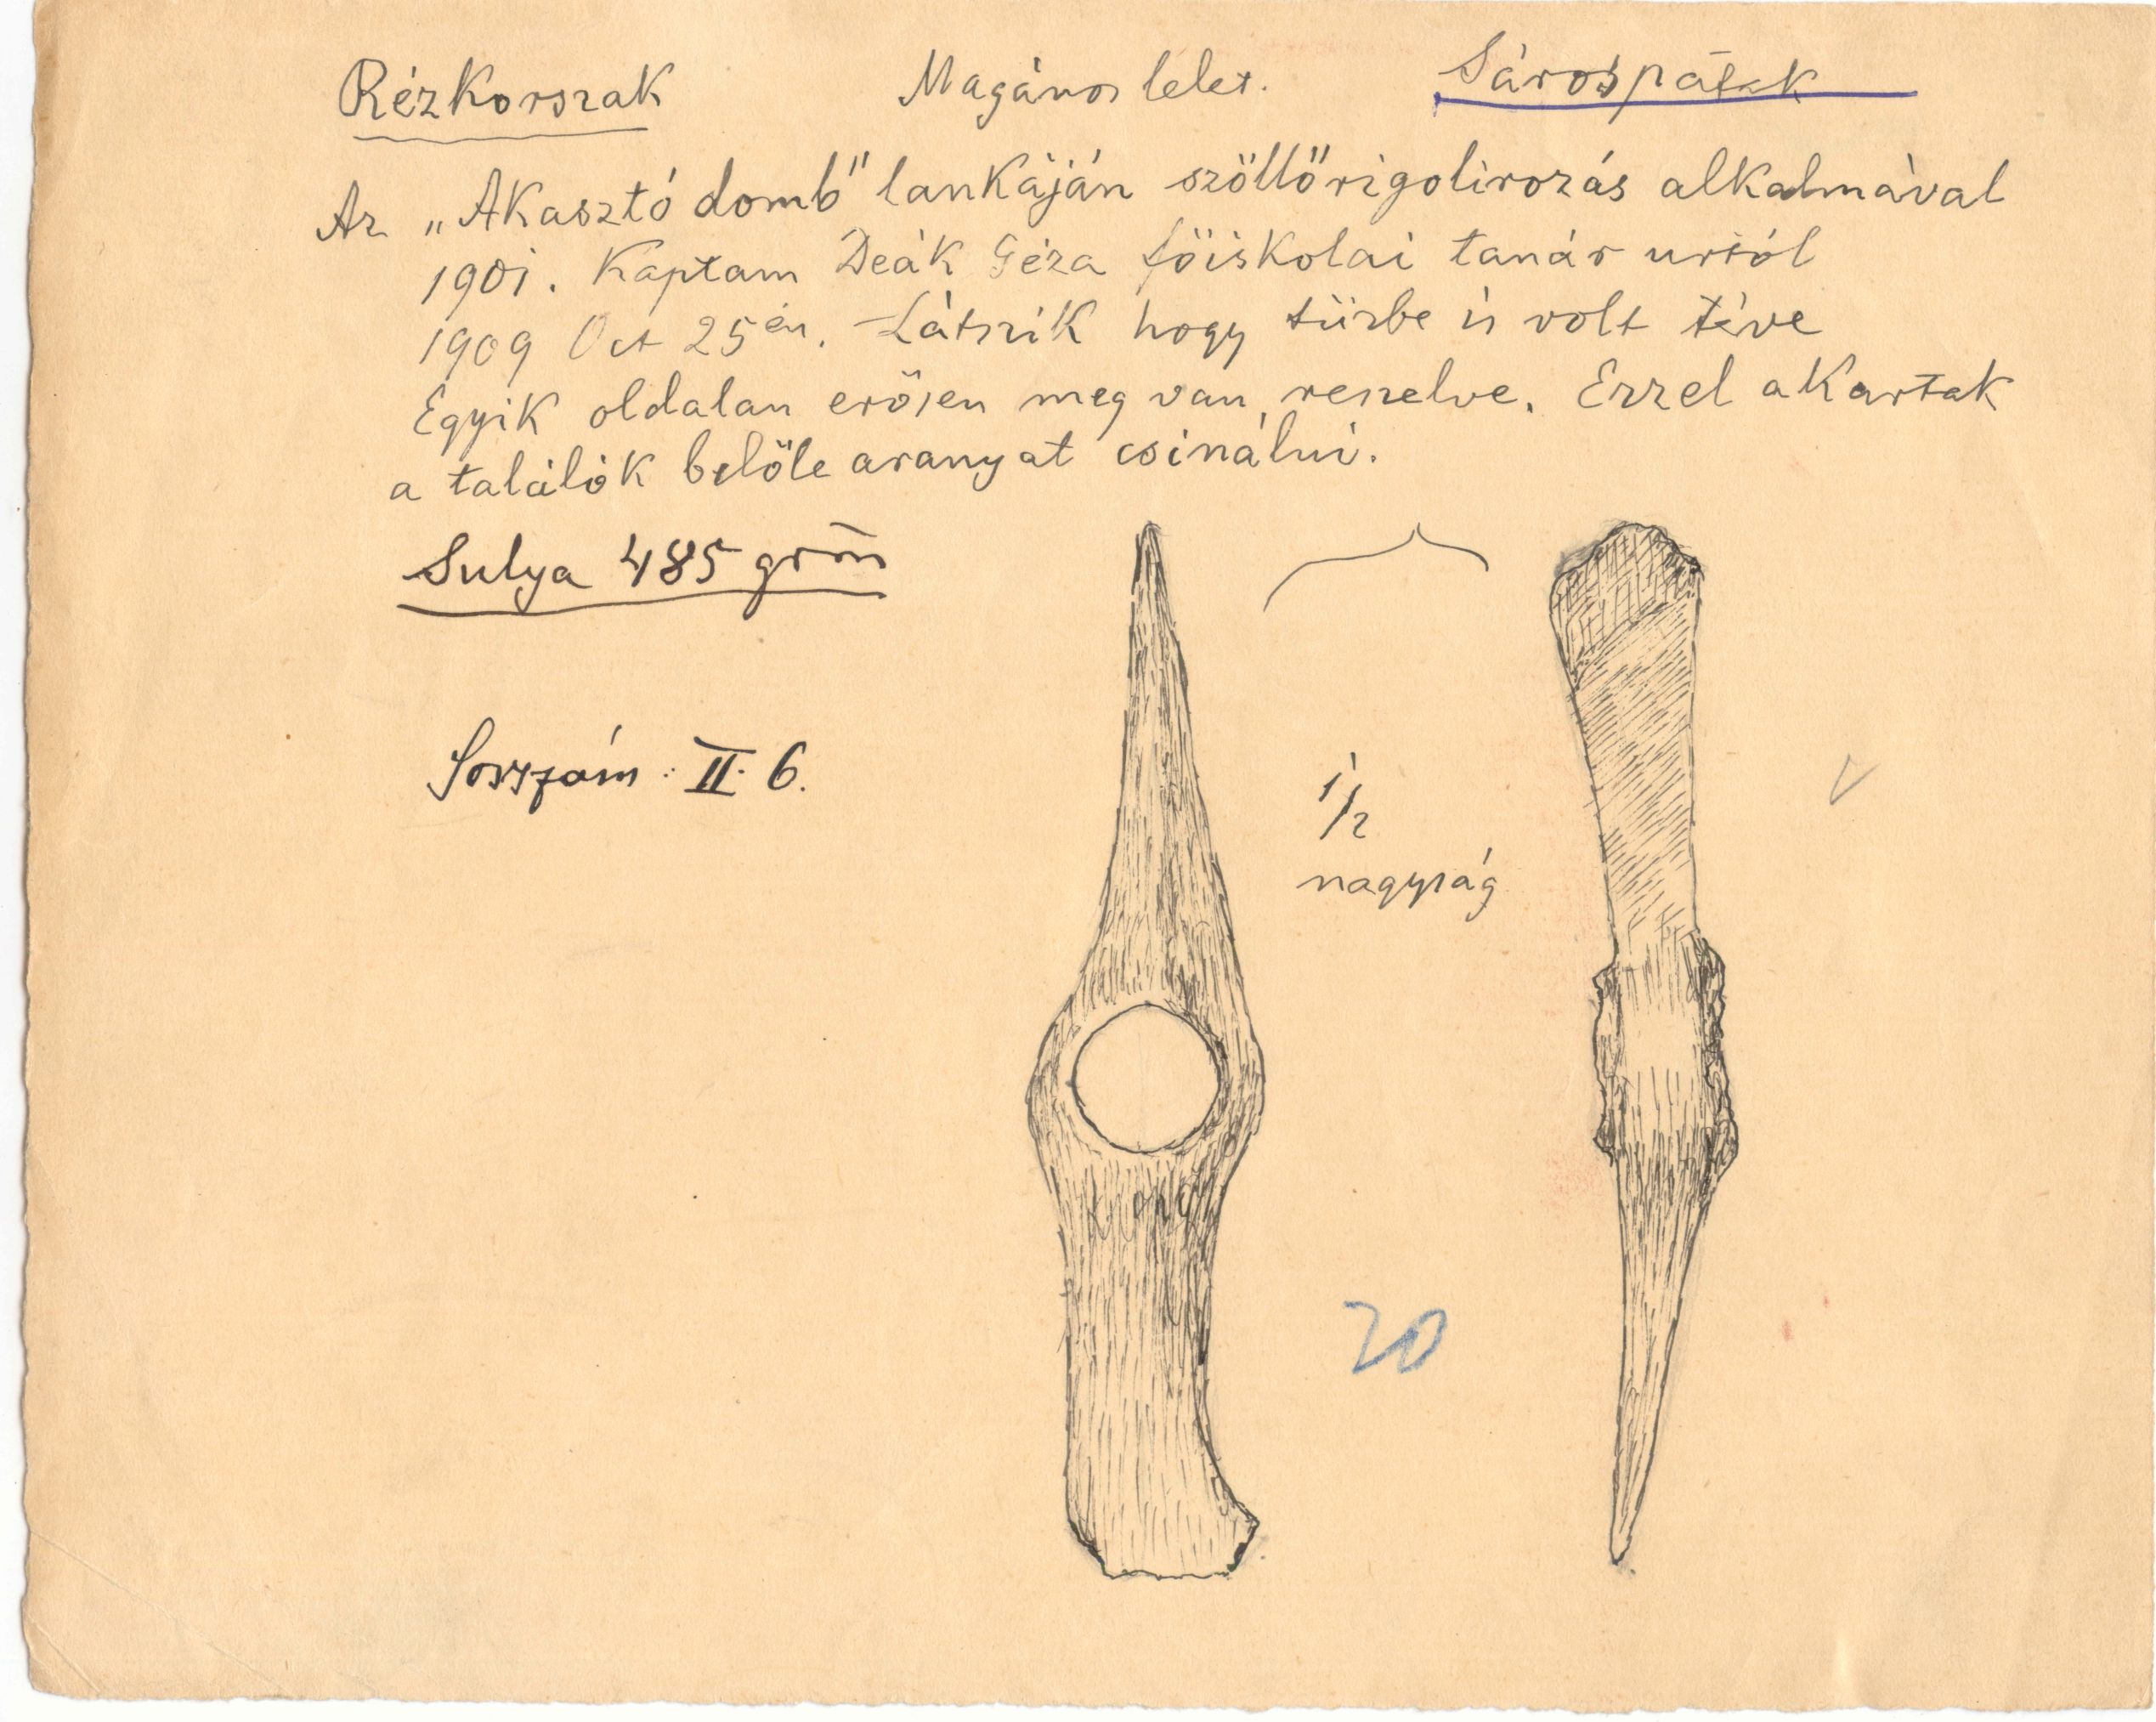 Rézkorszak Magános lelet. Sárospatak
Az „Akasztó domb" lankáján szöllőrigolirozás alkalmával
1901. Kaptam Deák Géza főiskolai tanár urtól
1909 Oct 25én. Látszik hogy tüzbe is volt téve
Egyik oldalan erősen meg van reszelve. Ezzel akartak
a találók belőle aranyat csinálni.
Sulya 485 grm
Sorszám: II. 6.
1/2
nagyság
20